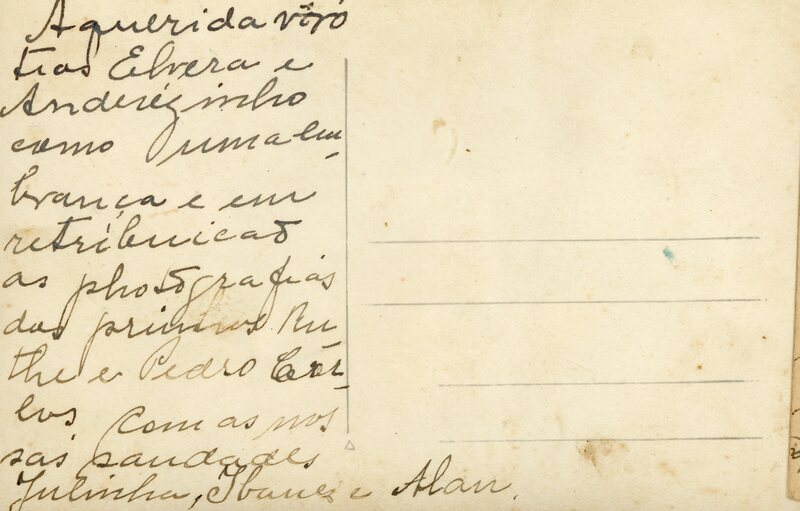 A querida vovó
tias Elvera e
Anderézinho
como uma lem-
brança e em
retribuicaõ
as photografias
dos primos Ru-
the e Pedro Car-
los com as nos
sas saudades
Julinha, Ibanez e Alan.